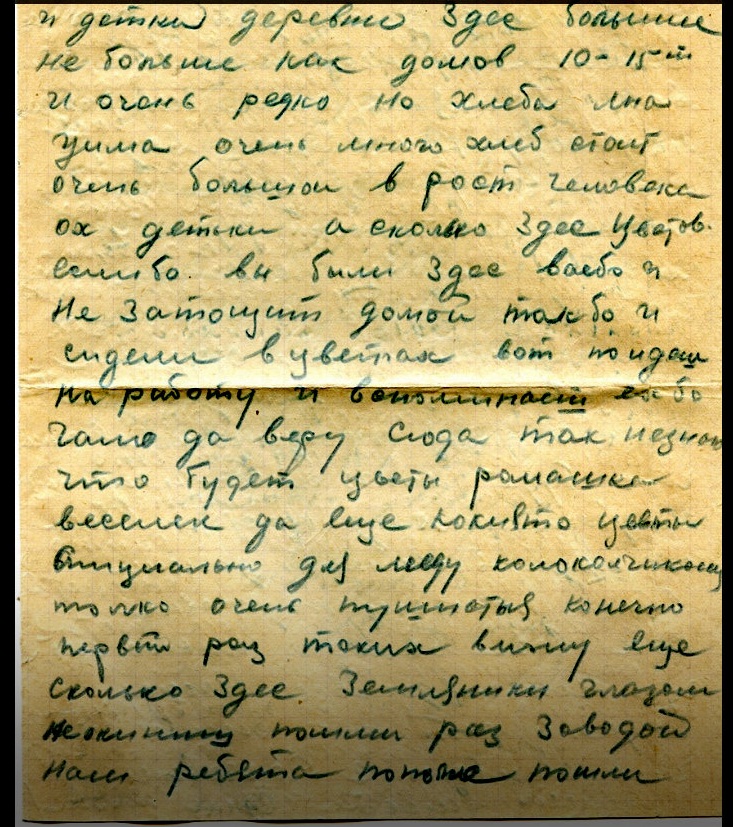 и детки деревни Здес большие
не больше как домов 10-15ть
и очень редко но хлеба
очень много хлеб стоит
очень большой в рост человека
ох детки а сколько Здес Цветов.
былибо вы были Здес
не Затощит домой так бо и
сидели в цветах вот поидеш
на работу и вспоминаеш
да веру сюда так незнаю
что будет цветы ромашка
василек да еще какиято цветы
для меду колоколчиком
толко очень пушыстыя конечно
первый раз таких вижу еще
сколько Здес Земляники глазом
неокиниш пошли раз Заводой
наш ребята пошли